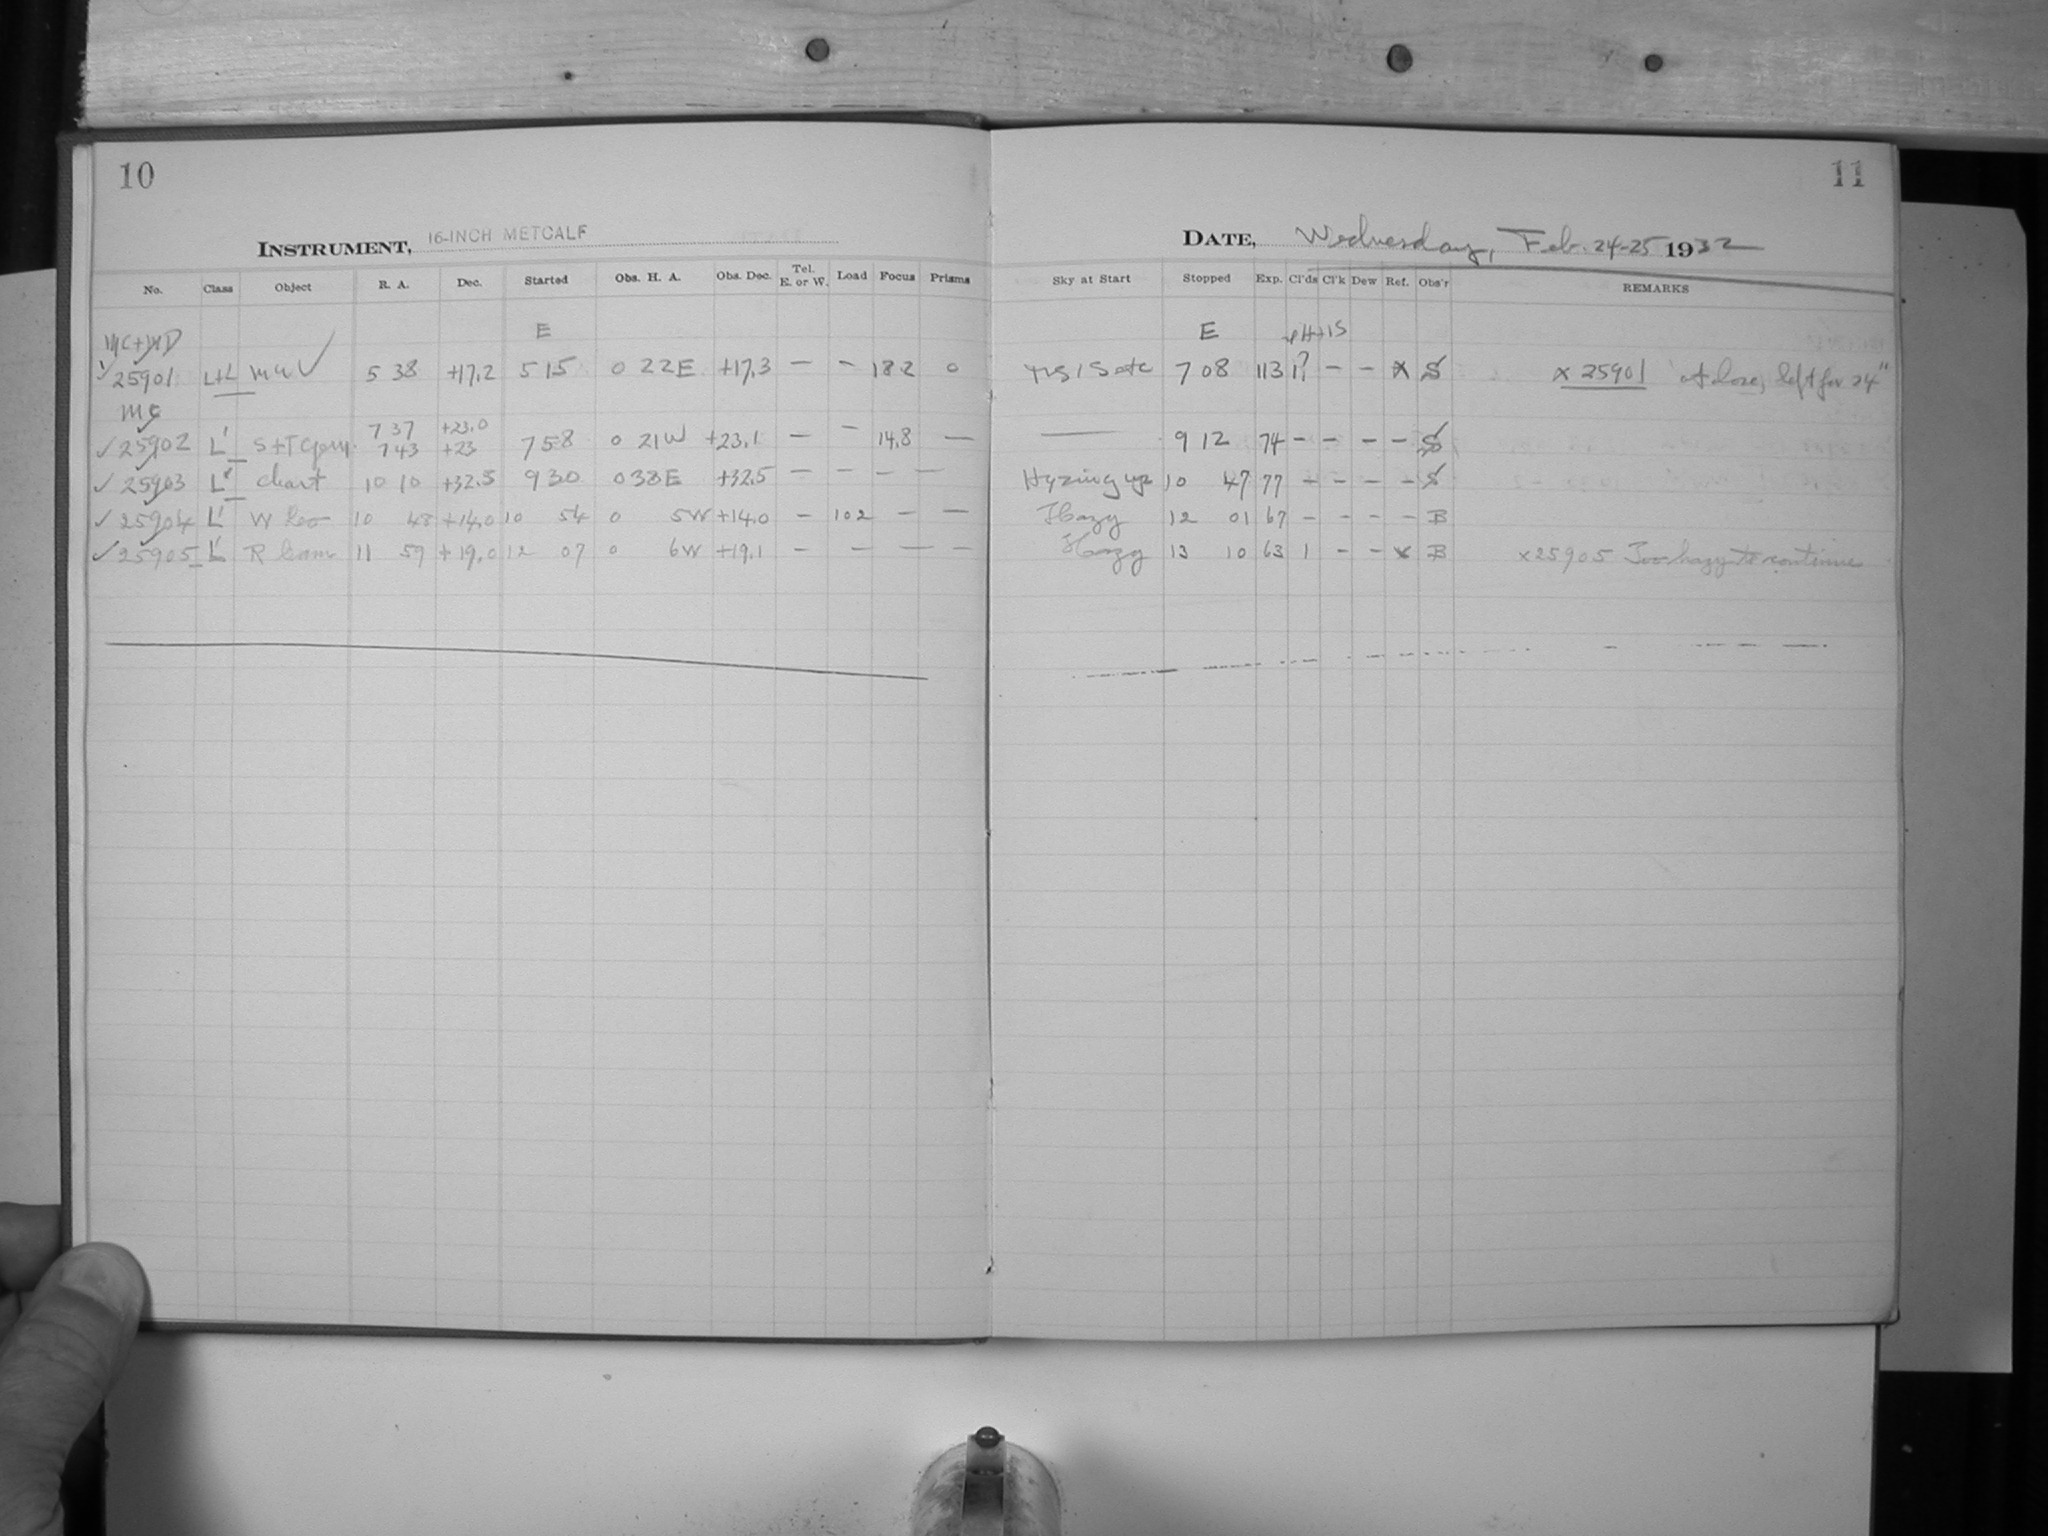 10
11
INSTRUMENT, 16-INCH METCALF
DATE, Wednesday, Feb. 24-25 1932
No. Class Object R. A. Dec. Started Obs. H. A. Obs. Dec. Tel. E. or W. Load Focus Prisms Sky at Start Stopped Exp. Cl'ds Cl'k Dew Ref. Obs'r REMARKS
MC+MD E E
✓ 25901 L+L ✓ 5 38 +17.2 5 15 0 22E +17.3 — – 18.2 0 7 08 113 1? – – x S x 25901 at close, left for 24"
MC
7 37 +23.0
✓ 25902 L' S+T Gem. 7 43 +23 7 58 0 21W +23.1 — – 14.8 — — 9 12 74 – – – – S
✓ 25903 L' chart 10 10 +32.5 9 30 0 38E +32.5 — – – — Hazing up 10 47 77 – – – – S
✓ 25904 L' W Leo 10 48 +14.0 10 54 0 5W +14.0 – 102 – — Hazy 12 01 67 – – – – B
✓ 25905 L' R Com 11 59 +19.0 12 07 0 6W +19.1 – – — – Hazy 13 10 63 1 – – x B x25905 Too hazy to continue